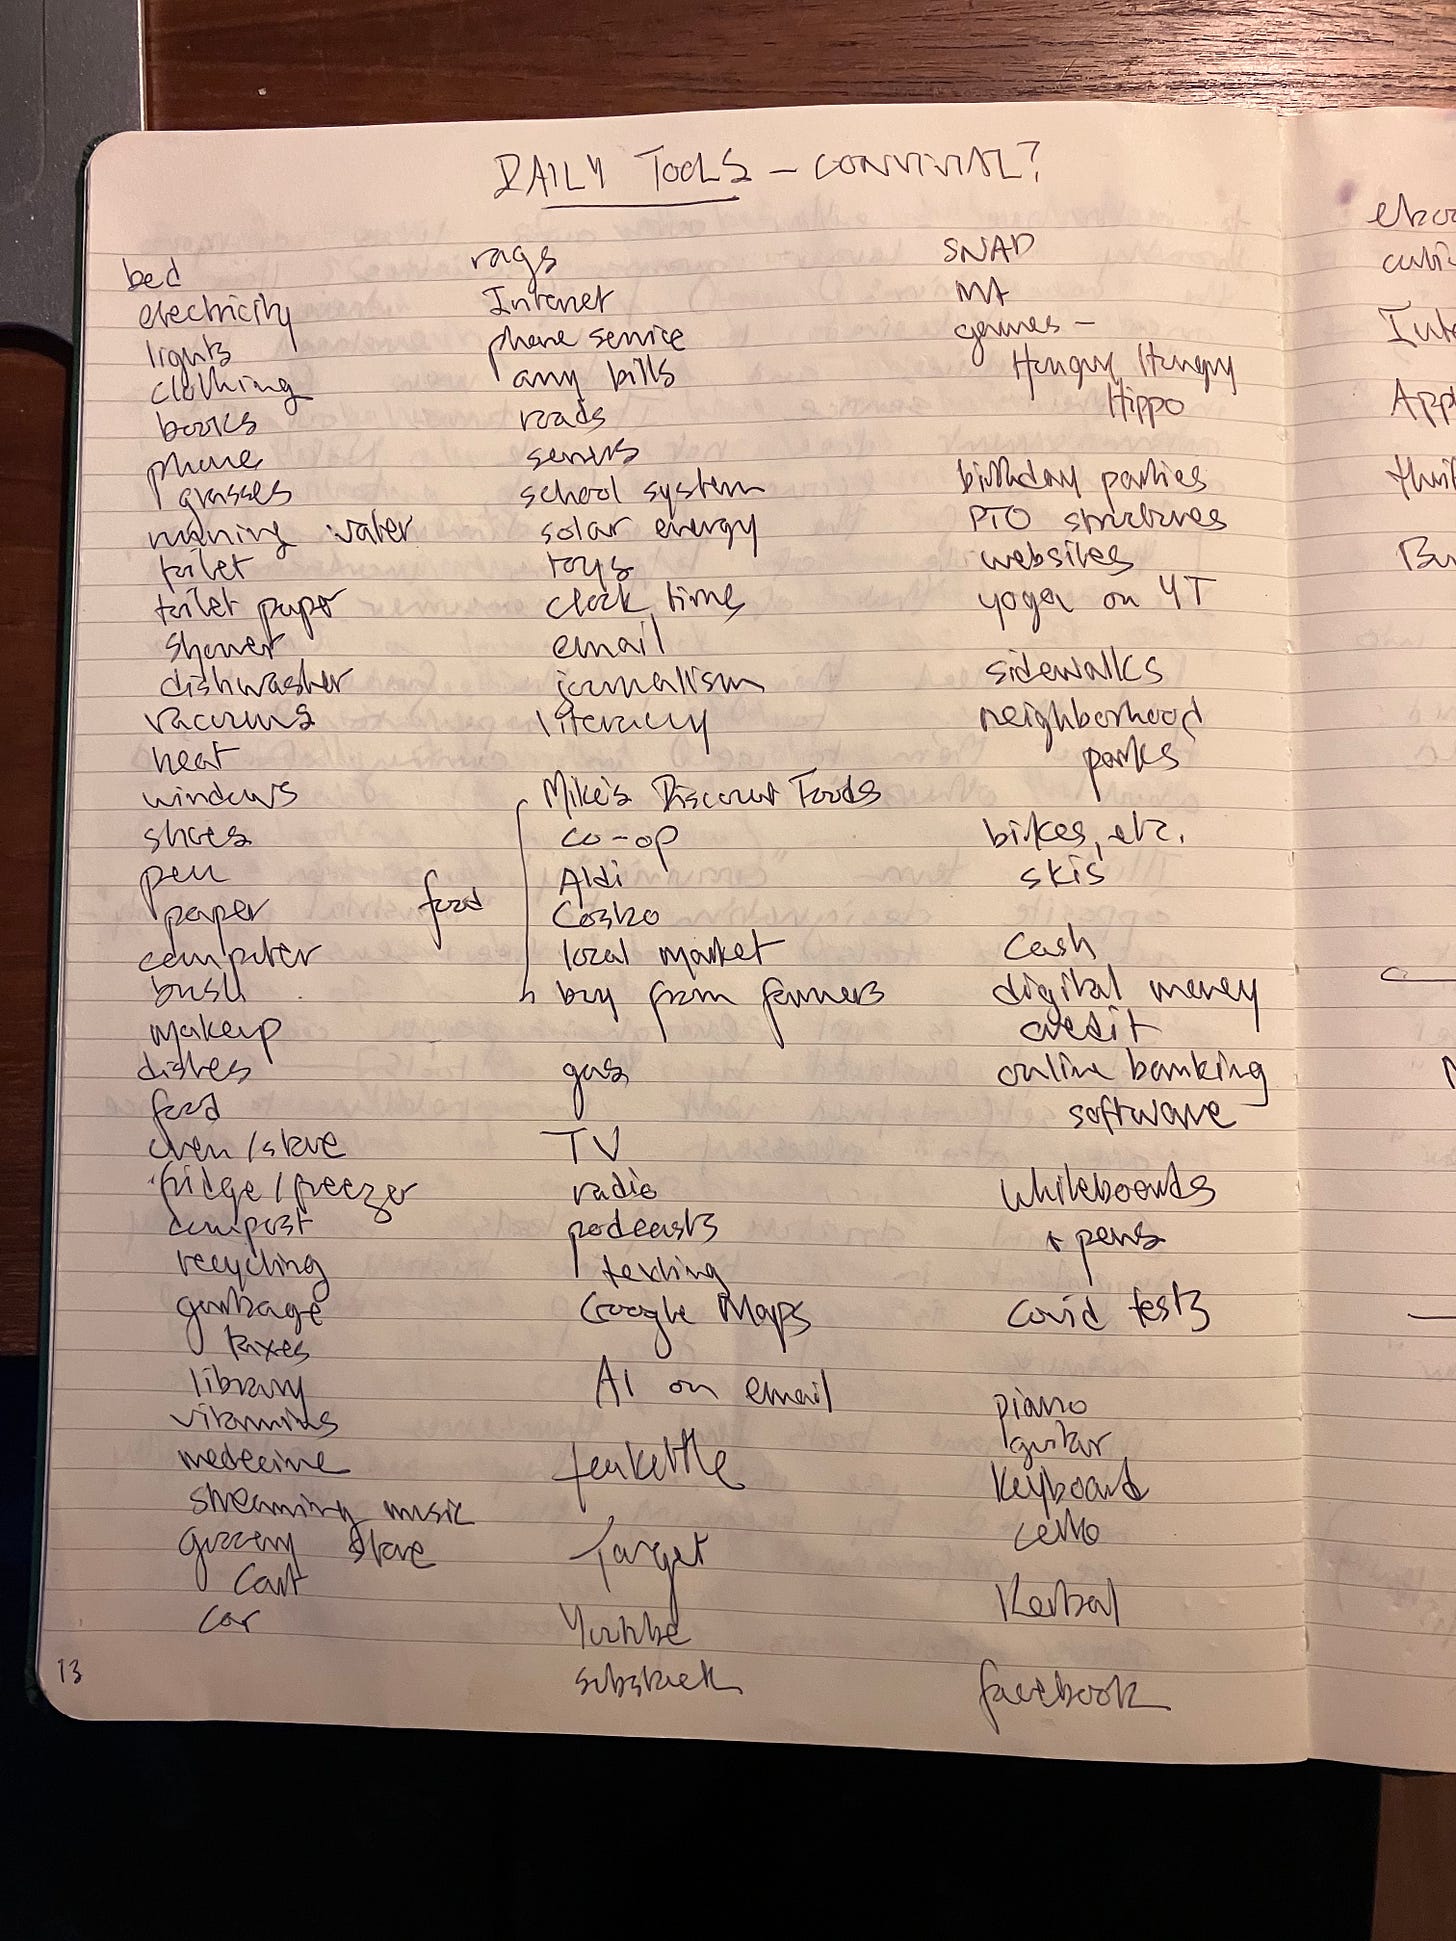 DAILY TOOLS - CONVIVIAL?
bed
electricity
lights
clothing
books
phone
glasses
running water
toilet
toilet paper
shower
dishwasher
vacuums
heat
windows
shoes
pen
paper
computer
brush
makeup
dishes
food
oven/stove
fridge/freezer
compost
recycling
garbage
taxes
library
vitamins
medecine
streaming music
grocery store
cart
car
13
rags
Internet
phone service
any bills
roads
sewers
school system
solar energy
toys
clock time
email
journalism
literacy
food
Mike's Discount Foods
co-op
Aldi
Costco
local market
buy from farmers
gas
TV
radio
podcasts
texting
Google Maps
AI on email
teakettle
Target
Youtube
substack
SNAP
MA
games -
Hungry Hungry
Hippo
birthday parties
PTO structures
websites
yoga on YT
sidewalks
neighborhood
parks
bikes, etc.
skis
cash
digital money
credit
online banking
software
whiteboards
+ pens
Covid tests
piano
guitar
keyboard
cello
Kerbal
facebook